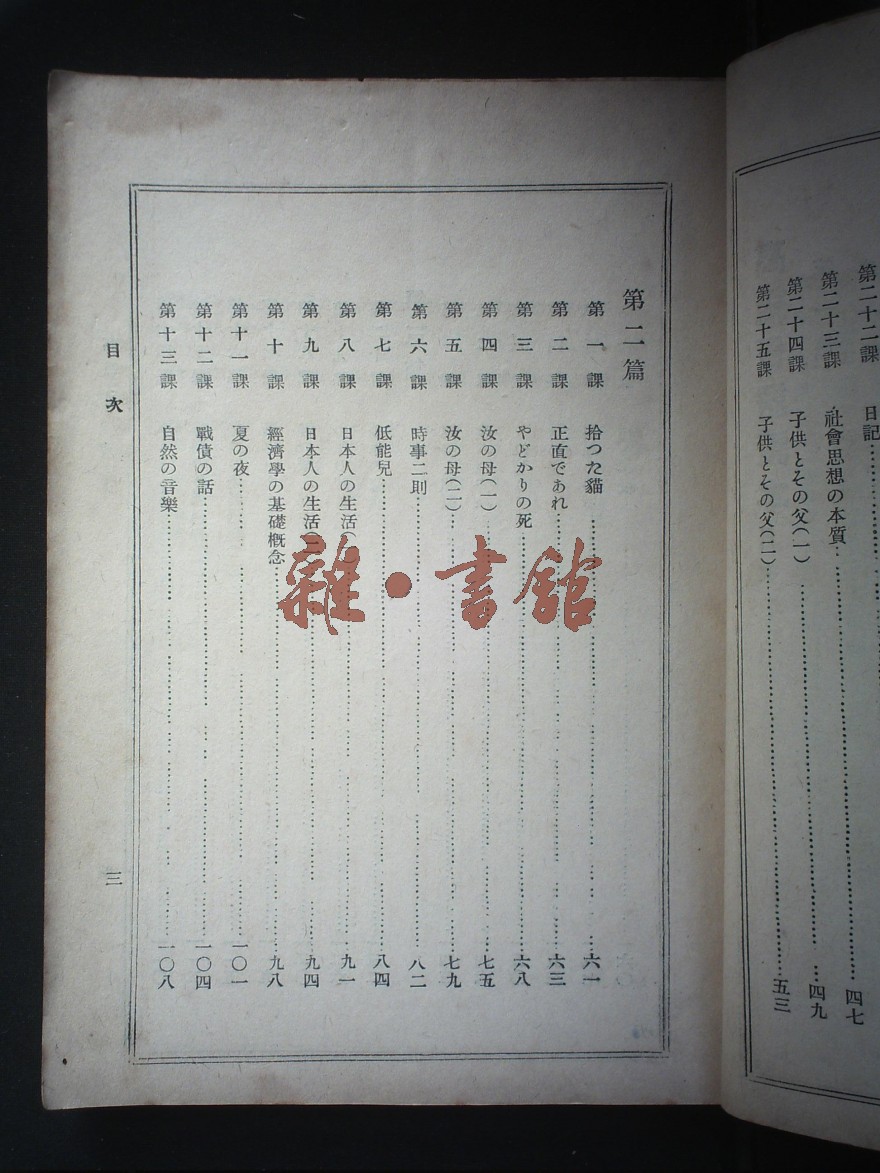 第二十二課 日記 四七
第二十三課 社會思想の本質
第二十四課 子供とその父(一) 四九
第二十五課 子供とその父(二) 五三
第二篇
第一課 拾つた貓 六一
第二課 正直であれ 六三
第三課 やどかりの死 六八
第四課 汝の母(一) 七五
第五課 汝の母(二) 七九
第六課 時事二則 八二
第七課 低能兒 八四
第八課 日本人の生活( 九一
第九課 日本人の生活( 九四
第十課 經濟學の基礎槪念 九八
第十一課 夏の夜 一〇一
第十二課 戰債の話 一〇四
第十三課 自然の音樂 一〇八
目次
三
雜·書館